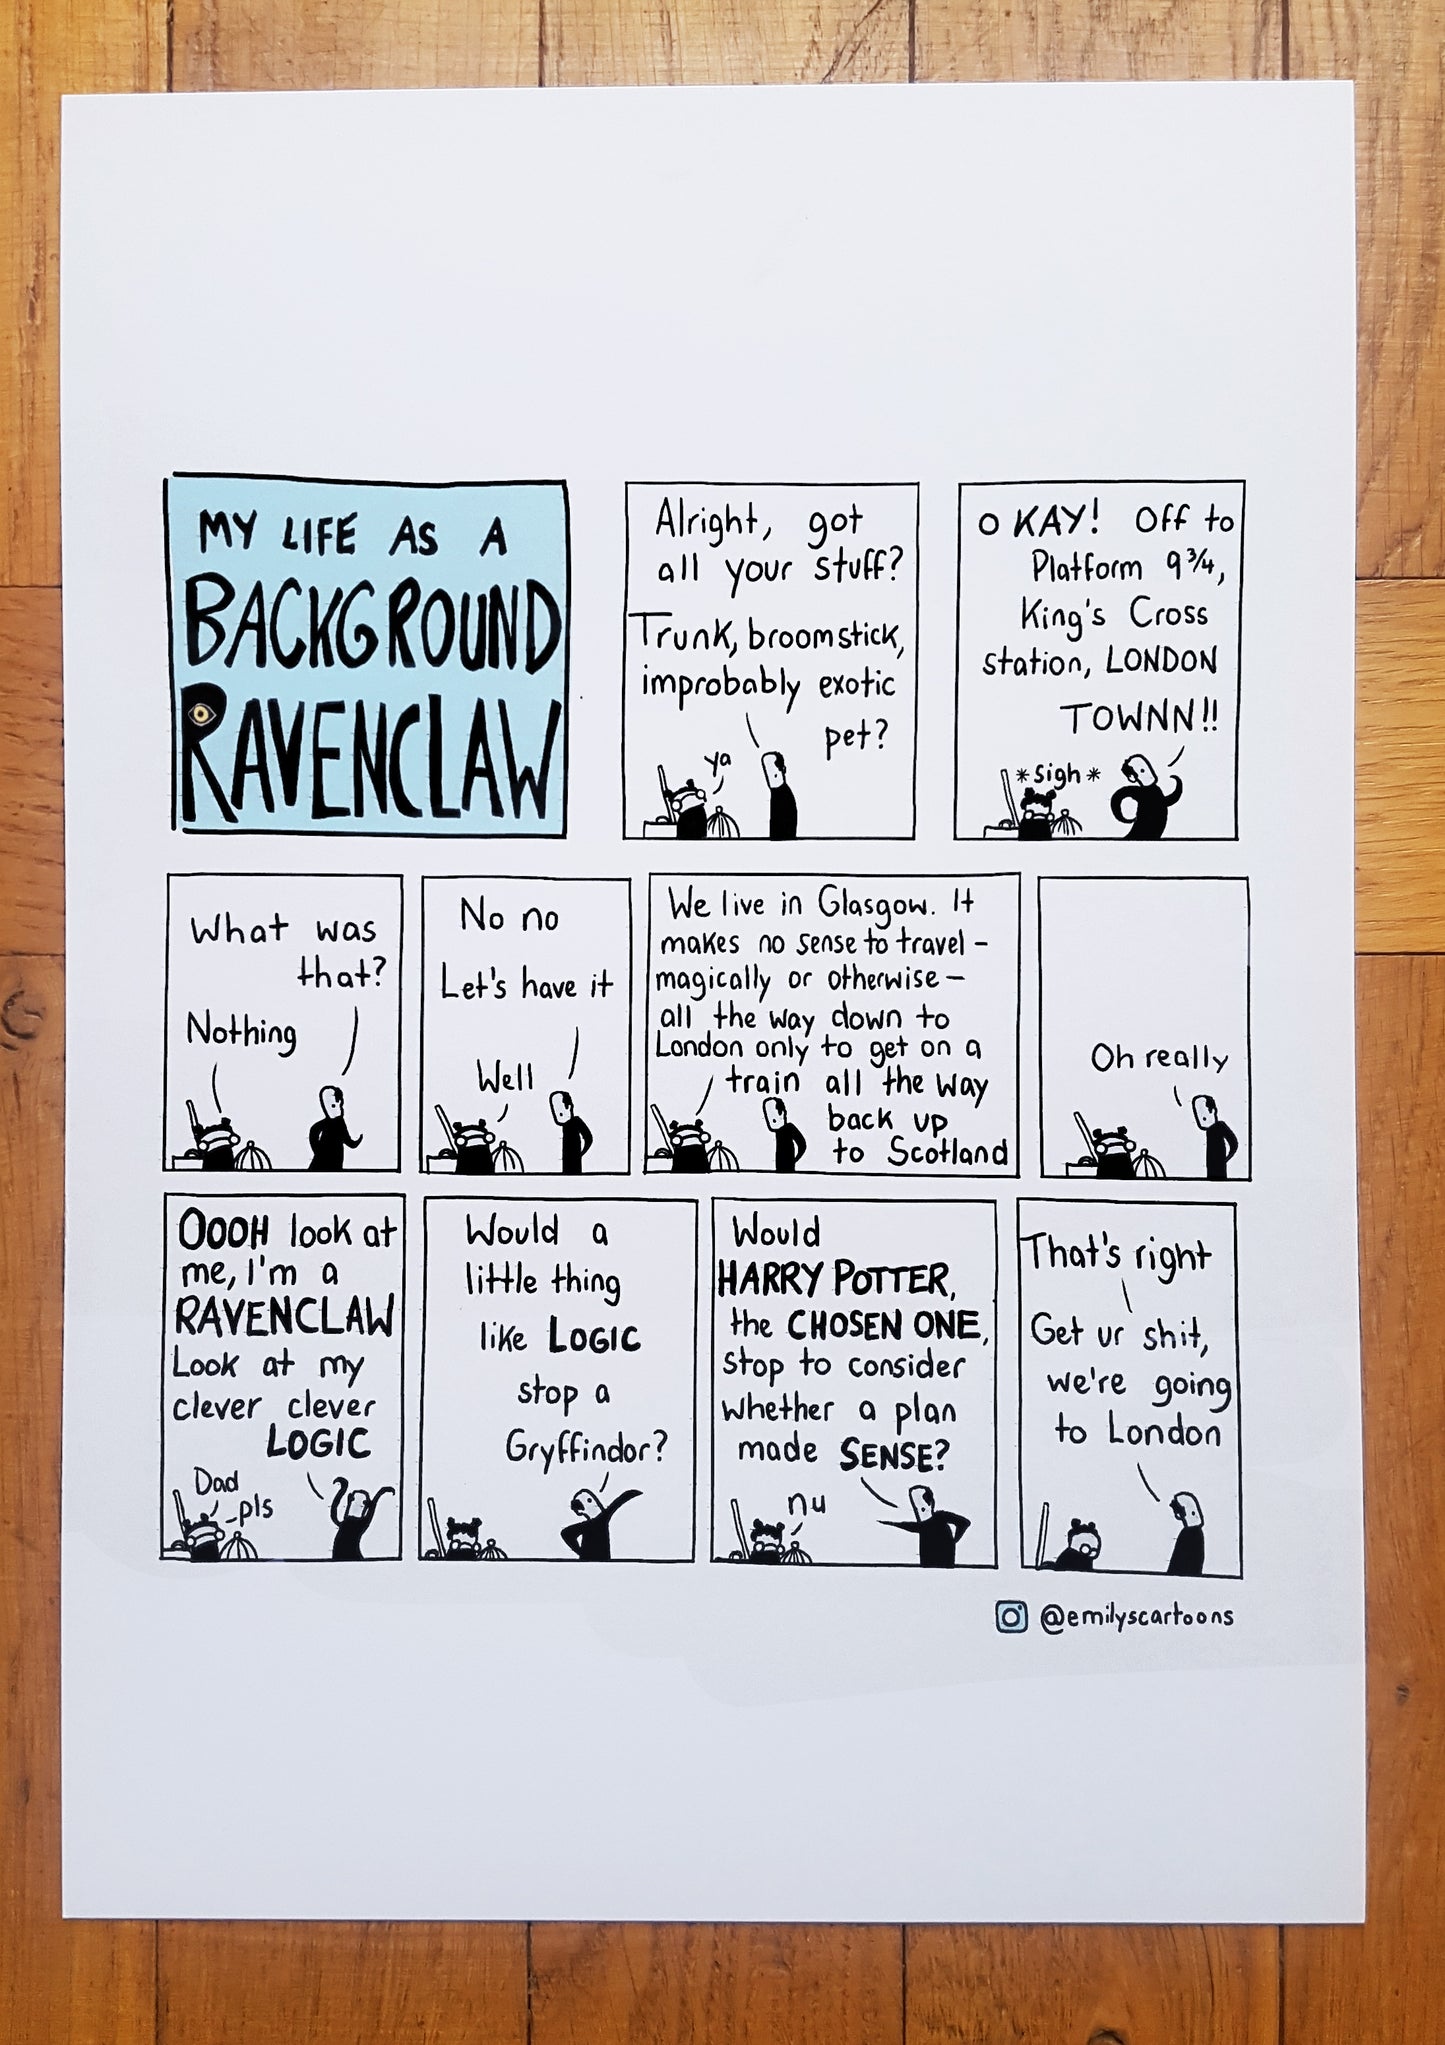 MY LIFE AS A
BACKGROUND
RAVENCLAW
Alright, got
all your stuff?
Trunk, broomstick,
improbably exotic
pet?
ya
OKAY! Off to
Platform 9¾,
King's Cross
station, LONDON
TOWNN!!
*sigh*
What was
that?
Nothing
No no
Let's have it
Well
We live in Glasgow. It
makes no sense to travel –
magically or otherwise –
all the way down to
London only to get on a
train all the way
back up
to Scotland
Oh really
OOOH look at
me, I'm a
RAVENCLAW
Look at my
clever clever
LOGIC
Dad
pls
Would a
little thing
like LOGIC
stop a
Gryffindor?
Would
HARRY POTTER,
the CHOSEN ONE,
stop to consider
whether a plan
made SENSE?
nu
That's right
Get ur shit,
we're going
to London
@emilyscartoons